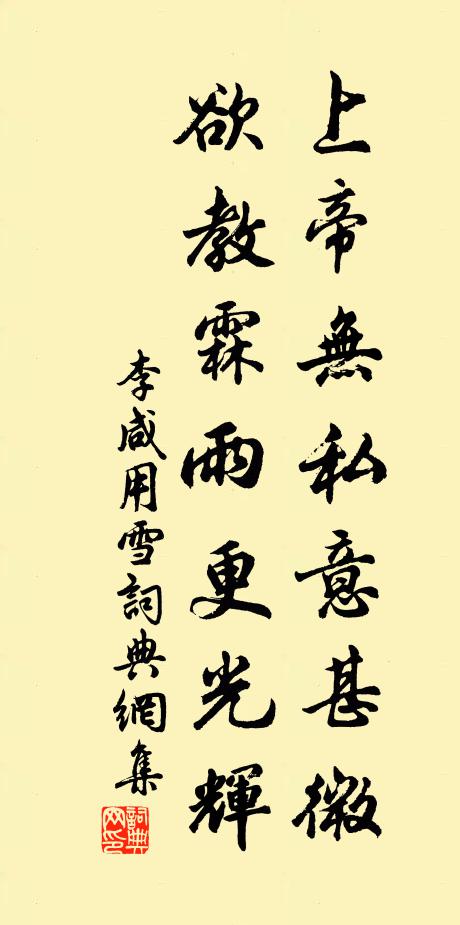 上帝無私意甚微
欲教霖雨更光輝
李咸用雪詞典網集
詞典
网印